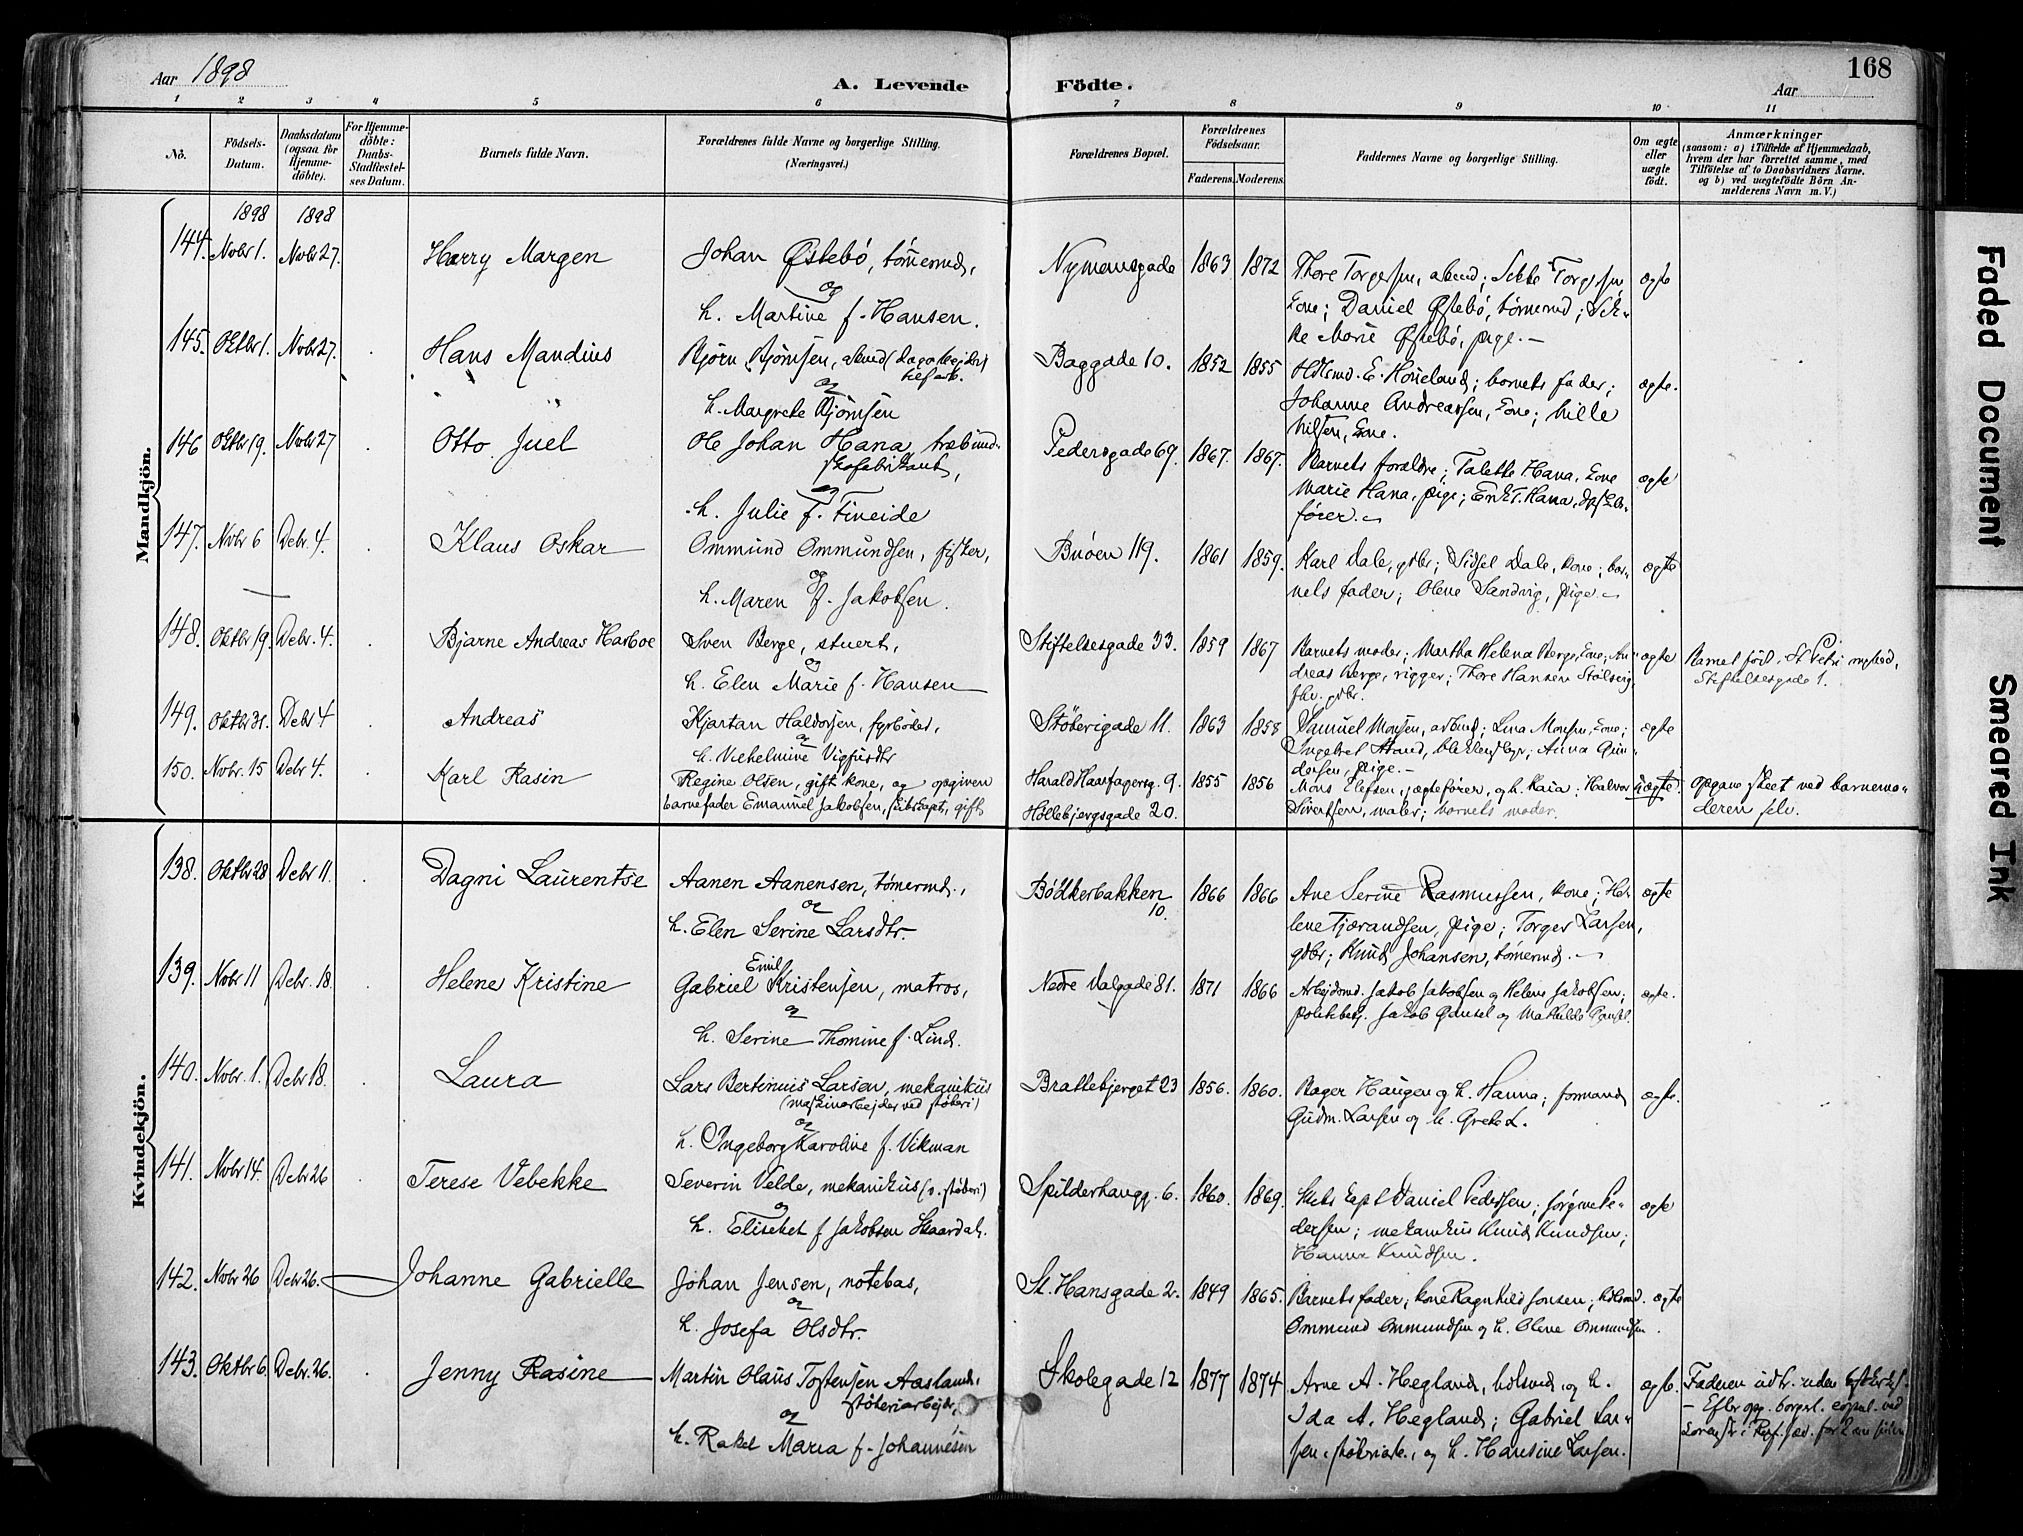 168
Aar 1898
A. Levende Födte.
Aar
1 2 3 4 5 6 7 8 9 10 11
No.
Födsels-Datum.
Daabsdatum (ogsaa for Hjemme-döbte).
For Hjemme-döbte: Daabs-Stadfæstel-ses Datum.
Barnets fulde Navn.
Forældrenes fulde Navne og borgerlige Stilling. (Næringsvei.)
Forældrenes Bopæl.
Forældrenes Födselsaar.
Faderens. Moderens.
Faddernes Navne og borgerlige Stilling.
Om ægte eller uægte födt.
Anmærkninger
(saasom: a) i Tilfælde af Hjemmedaab, hvem der har forrettet samme, med Tilföielse af to Daabsvidners Navne. og b) ved uægtefödte Börn An-melderens Navn m. V.)
Mandkjön.
1898 1898
144. Novbr 1. Novbr 27. Harry Margen Johan Østebö, tömmermd., Nymansgade 1863 1872 Thore Torgersen, Torgersen ægte
og
h. Martine f. Hansen.
kone; Daniel Østebö, tömermd;
Marie Østebö, pige. —
145. Oktbr 1. Novbr 27. Hans Mandius Bjørn Bjørnsen, Baggade 10. 1852 1855 E. Houeland; barnets fader; ægte.
og
h. Margrete Bjørnsen
Johanne Andreassen, kone;
Nilsen, kone.
146 Oktbr 19. Novbr 27 Otto Juel Ole Johan Hana, træbund-skofabrikant, Pedersgade 69. 1867. 1867. Barnets forældre; Talette Hana, kone ægte
og
h. Julie f. Fineide
Marie Hana, pige; Hana,
fører. —
147. Novbr 6 Debr. 4. Klaus Oskar Ommund Ommundsen, fisker, Buöen 119. 1861 1859. Karl Dale, gdbr; Sidsel Dale, kone; bar- ægte
og
h. Maren f. Jakobsen.
nets fader; Olene Sandvig, pige —
148. Oktbr 19. Debr. 4. Bjarne Andreas Harboe Sven Berge, stuert, Stiftelsesgade 33. 1859 1867 Barnets moder; Martha Helena Berge, kone; An- ægte Barnet föd. i St Petri
og
h. Elen Marie f. Hansen
dreas Berge, rigger; Thore Hansen
Stiftelsesgade 1.
149. Oktbr 31. Debr 4 Andreas Kjartan Haldorsen, fyrböder, Støberigade 11. 1863 1858 Samuel Monsen, arbmd; Lina Monsen, kone; ægte
og
h. Vilhelmine Vigfusdtr
Anna Gun-
dersen, pige. —
150. Novbr. 15 Debr 4. Karl Rasin Regine Olsen, gift kone, og opgiven Harald Haarfagersg. 9. 1855 1856 Mons Elefsen, jægtefører, og h. Kaia; Halvor uægte. Opgave skeet ved barnemo-
barnefader Emanuel Jakobsen, skibskapt, gift, Hollebjergsgade 20. Sivertsen, maler; barnets moder. deren selv.
Kvindekjön.
138. Oktbr 28 Debr 11. Dagni Laurentse Aanen Aanensen, tömermd., Bödkerbakken 10. 1866 1866 Ane Serine Rasmussen, kone; He- ægte
og
h. Elen Serine Larsdtr.
lene Tjærandsen, pige; Torger Larsen,
gdbr; Knud Johansen, tömermd. —
139. Novbr 11 Debr. 18. Helene Kristine Gabriel Emil Kristensen, matros, Nedre Dalgade 81. 1871 1866 Arbejdsmd. Jakob Jakobsen og Helene Jakobsen; ægte.
og
h. Serine Thomine f. Lind.
politibetj. Jakob Gausel og Mathilde Gausel.
140. Novbr. 1. Debr 18. Laura Lars Bertinius Larsen, mekanikus Brattebjerget 23 1856. 1860. Bager Haugen og h. Hanna; formand ægte.
(maskinarbejder ved støberi)
og
h. Ingeborg Karoline f. Vikman
Gudm. Larsen og h. Grete L.
141. Novbr 14. Debr 26 Terese Vebekke Severin Velde, mekanikus (v. støberi) Spilderhaugg. 6. 1860. 1869. Skibskapt Daniel Pedersen; Jørgine Pe- ægte
og
h. Elisebet f Jakobsen Skaardal.
dersen; mekanikus Knud Knudsen;
Hanna Knudsen.
142. Novbr 26 Debr 26. Johanne Gabrielle Johan Jensen, notebas, St. Hansgade 2. 1849 1865. Barnets fader; kone Ragnhild Jonsen; hdlsmd. ægte
og
h. Josefa Olsdtr.
Ommund Ommundsen og h. Olene Ommundsen.
143. Oktbr 6. Debr. 26. Jenny Rasine Martin Olaus Tostensen Aasland, støberiarbejdr, Skolegade 12 1877 1874 Arne A. Hegland, hdlsmd, og h. ægte. Faderen udtr. uden
og
h. Rakel Maria f. Johannesen
Ida A. Hegland; Gabriel Lar-
sen, og h. Hansine Larsen.
— Efter opg. borgerl. copul. ved
Faded Document
Smeared Ink